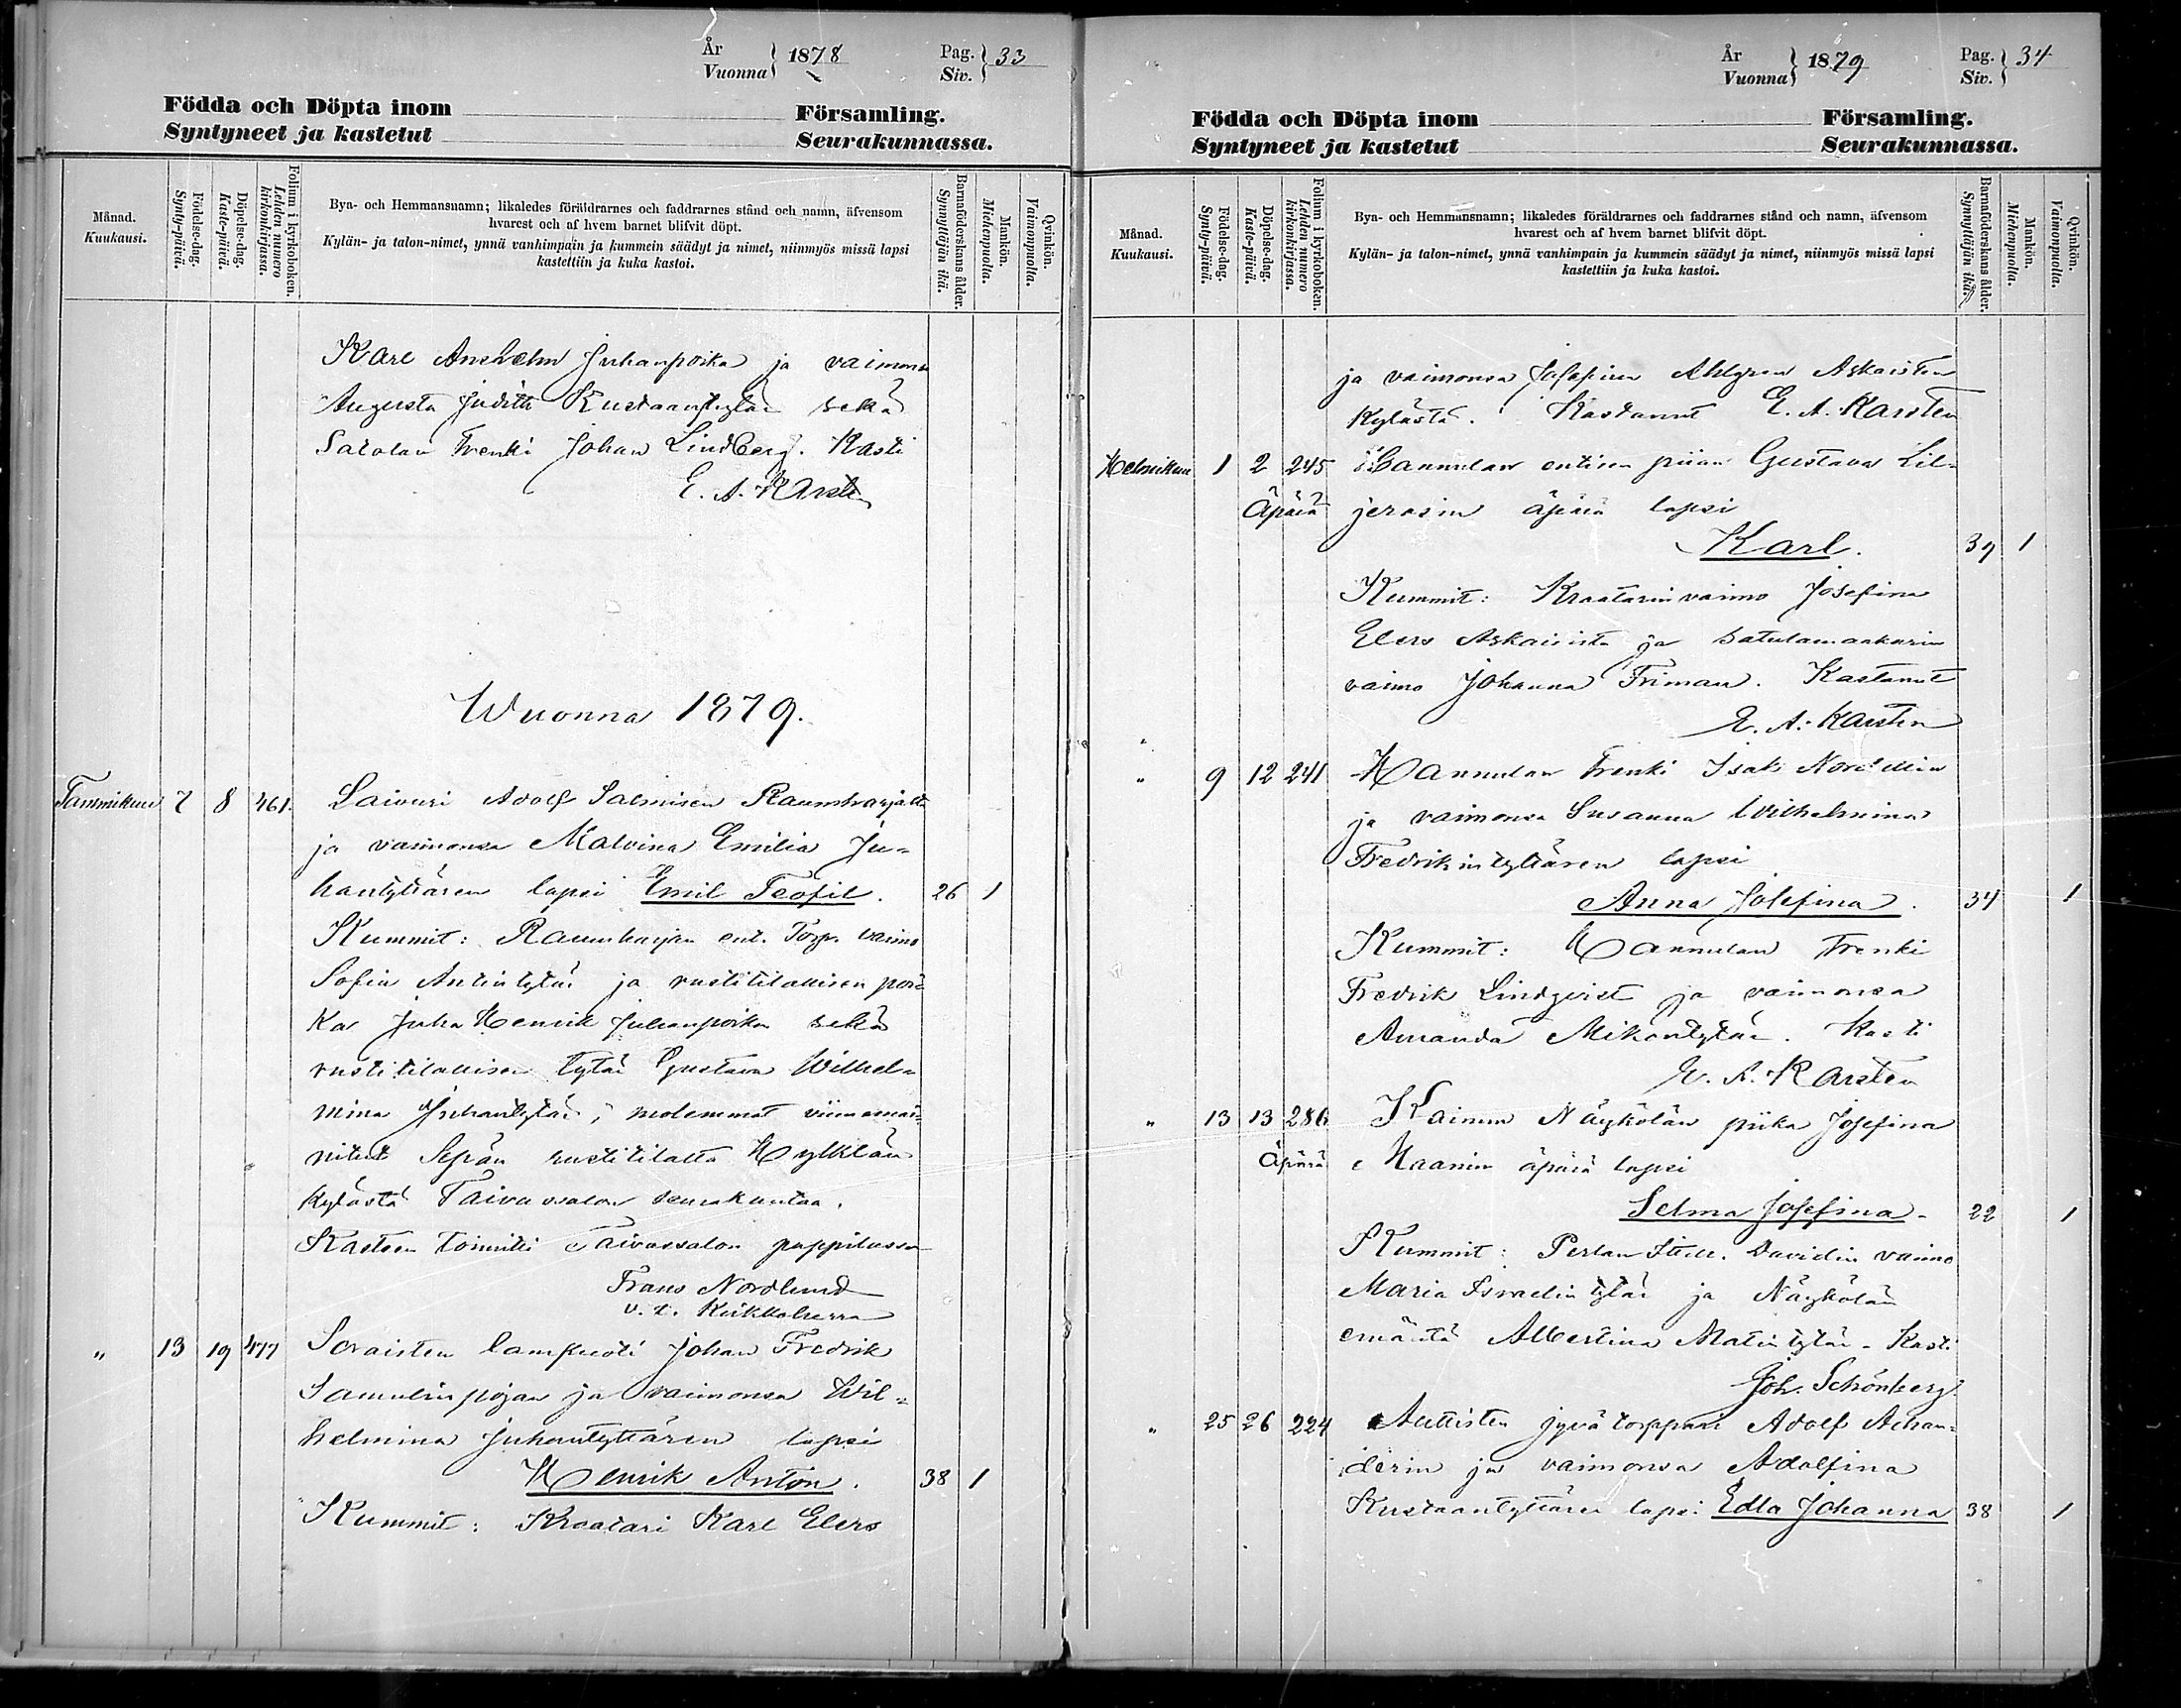 År
Vuonna } 1878
Pag.
Siv. } 33
Födda och Döpta inom Församling.
Syntyneet ja kastetut Seurakunnassa.
Månad.
Kuukausi.
Födelse-dag.
Synty-päivä.
Döpelse-dag.
Kaste-päivä.
Folium i kyrkoboken.
Lehden numero
kirkonkirjassa.
Bya- och Hemmansnamn; likaledes föräldrarnes och faddrarnes stånd och namn, äfvensom
hvarest och af hvem barnet blifvit döpt.
Kylän- ja talon-nimet, ynnä vanhimpain ja kummein säädyt ja nimet, niinmyös missä lapsi
kastettiin ja kuka kastoi.
Barnaföderskans ålder.
Synnyttäjän ikä.
Mankön.
Miehenpuolta.
Qvinkön.
Vaimonpuolta.
Karl Anshelm Juhanpoika ja vaimonsa
Augusta Judith Kustaantytär sekä
Satolan trenki Johan Lindberg. Kasti
E. A. Karsten
Wuonna 1879.
Tammikuu 7 8 461. Laivuri Adolf Salmisen Raumharjalta
ja vaimonsa Malvina Emilia Ju-
hantyttären lapsi Emil Teofil. 26 1
Kummit: Raumharjan ent. Torp. vaimo
Sofia Antintytär ja rustitilallisen poi-
ka Juha Henrik Juhanpoika sekä
rustitilallisen tytär Gustava Wilhel-
mina Juhantytär, molemmat viimemai-
nitut Sepän rustitilalta Hylkilän
kylästä Taivassalon seurakuntaa.
Kasteen toimitti Taivassalon pappilassa
Frans Nordlund
v. t. Kirkkoherra
" 13 19 477 Soraisten lampuoti Johan Fredrik
Samulinpojan ja vaimonsa Wil-
helmina Juhantyttären lapsi
Henrik Anton. 38 1
Kummit: Kraatari Karl Elers
År
Vuonna } 1879
Pag.
Siv. } 34
Födda och Döpta inom Församling.
Syntyneet ja kastetut Seurakunnassa.
Månad.
Kuukausi.
Födelse-dag.
Synty-päivä.
Döpelse-dag.
Kaste-päivä.
Folium i kyrkoboken.
Lehden numero
kirkonkirjassa.
Bya- och Hemmansnamn; likaledes föräldrarnes och faddrarnes stånd och namn, äfvensom
hvarest och af hvem barnet blifvit döpt.
Kylän- ja talon-nimet, ynnä vanhimpain ja kummein säädyt ja nimet, niinmyös missä lapsi
kastettiin ja kuka kastoi.
Barnaföderskans ålder.
Synnyttäjän ikä.
Mankön.
Miehenpuolta.
Qvinkön.
Vaimonpuolta.
ja vaimonsa Josefina Ahlgren Askaisten
kylästä. Kastanut E. A. Karsten
Helmikuu 1 2 245 entisen piian Gustava Lil-
Äpärä jerosin äpärä lapsi
Karl. 39 1
Kummit: Kraatarin vaimo Josefina
Elers Askaisista ja Satulamaakarin
vaimo Johanna Friman. Kastanut
E. A. Karsten
" 9 12 241 Hannulan trenki Isak Nordellin
ja vaimonsa Susanna Wilhelmina
Fredrikintyttären lapsi
Anna Josefina. 34 1
Kummit: Hannulan trenki
Fredrik Lindqvist ja vaimonsa
Amanda Mikontytär. Kasti
E. A. Karsten
" 13 13 286 Kaimin Näykölän piika Josefina
Äpärä Maanin äpärä lapsi
Selma Josefina. 22 1
Kummit: Perlan Davidin vaimo
Maria Israelintytär ja Näykölän
emäntä Albertina Matintytär. Kasti
Joh. Schönberg
" 25 26 224 Auttisten jyvätorppari Adolf Achan-
derin ja vaimonsa Adolfina
Kustaantyttären lapsi Edla Johanna 38 1